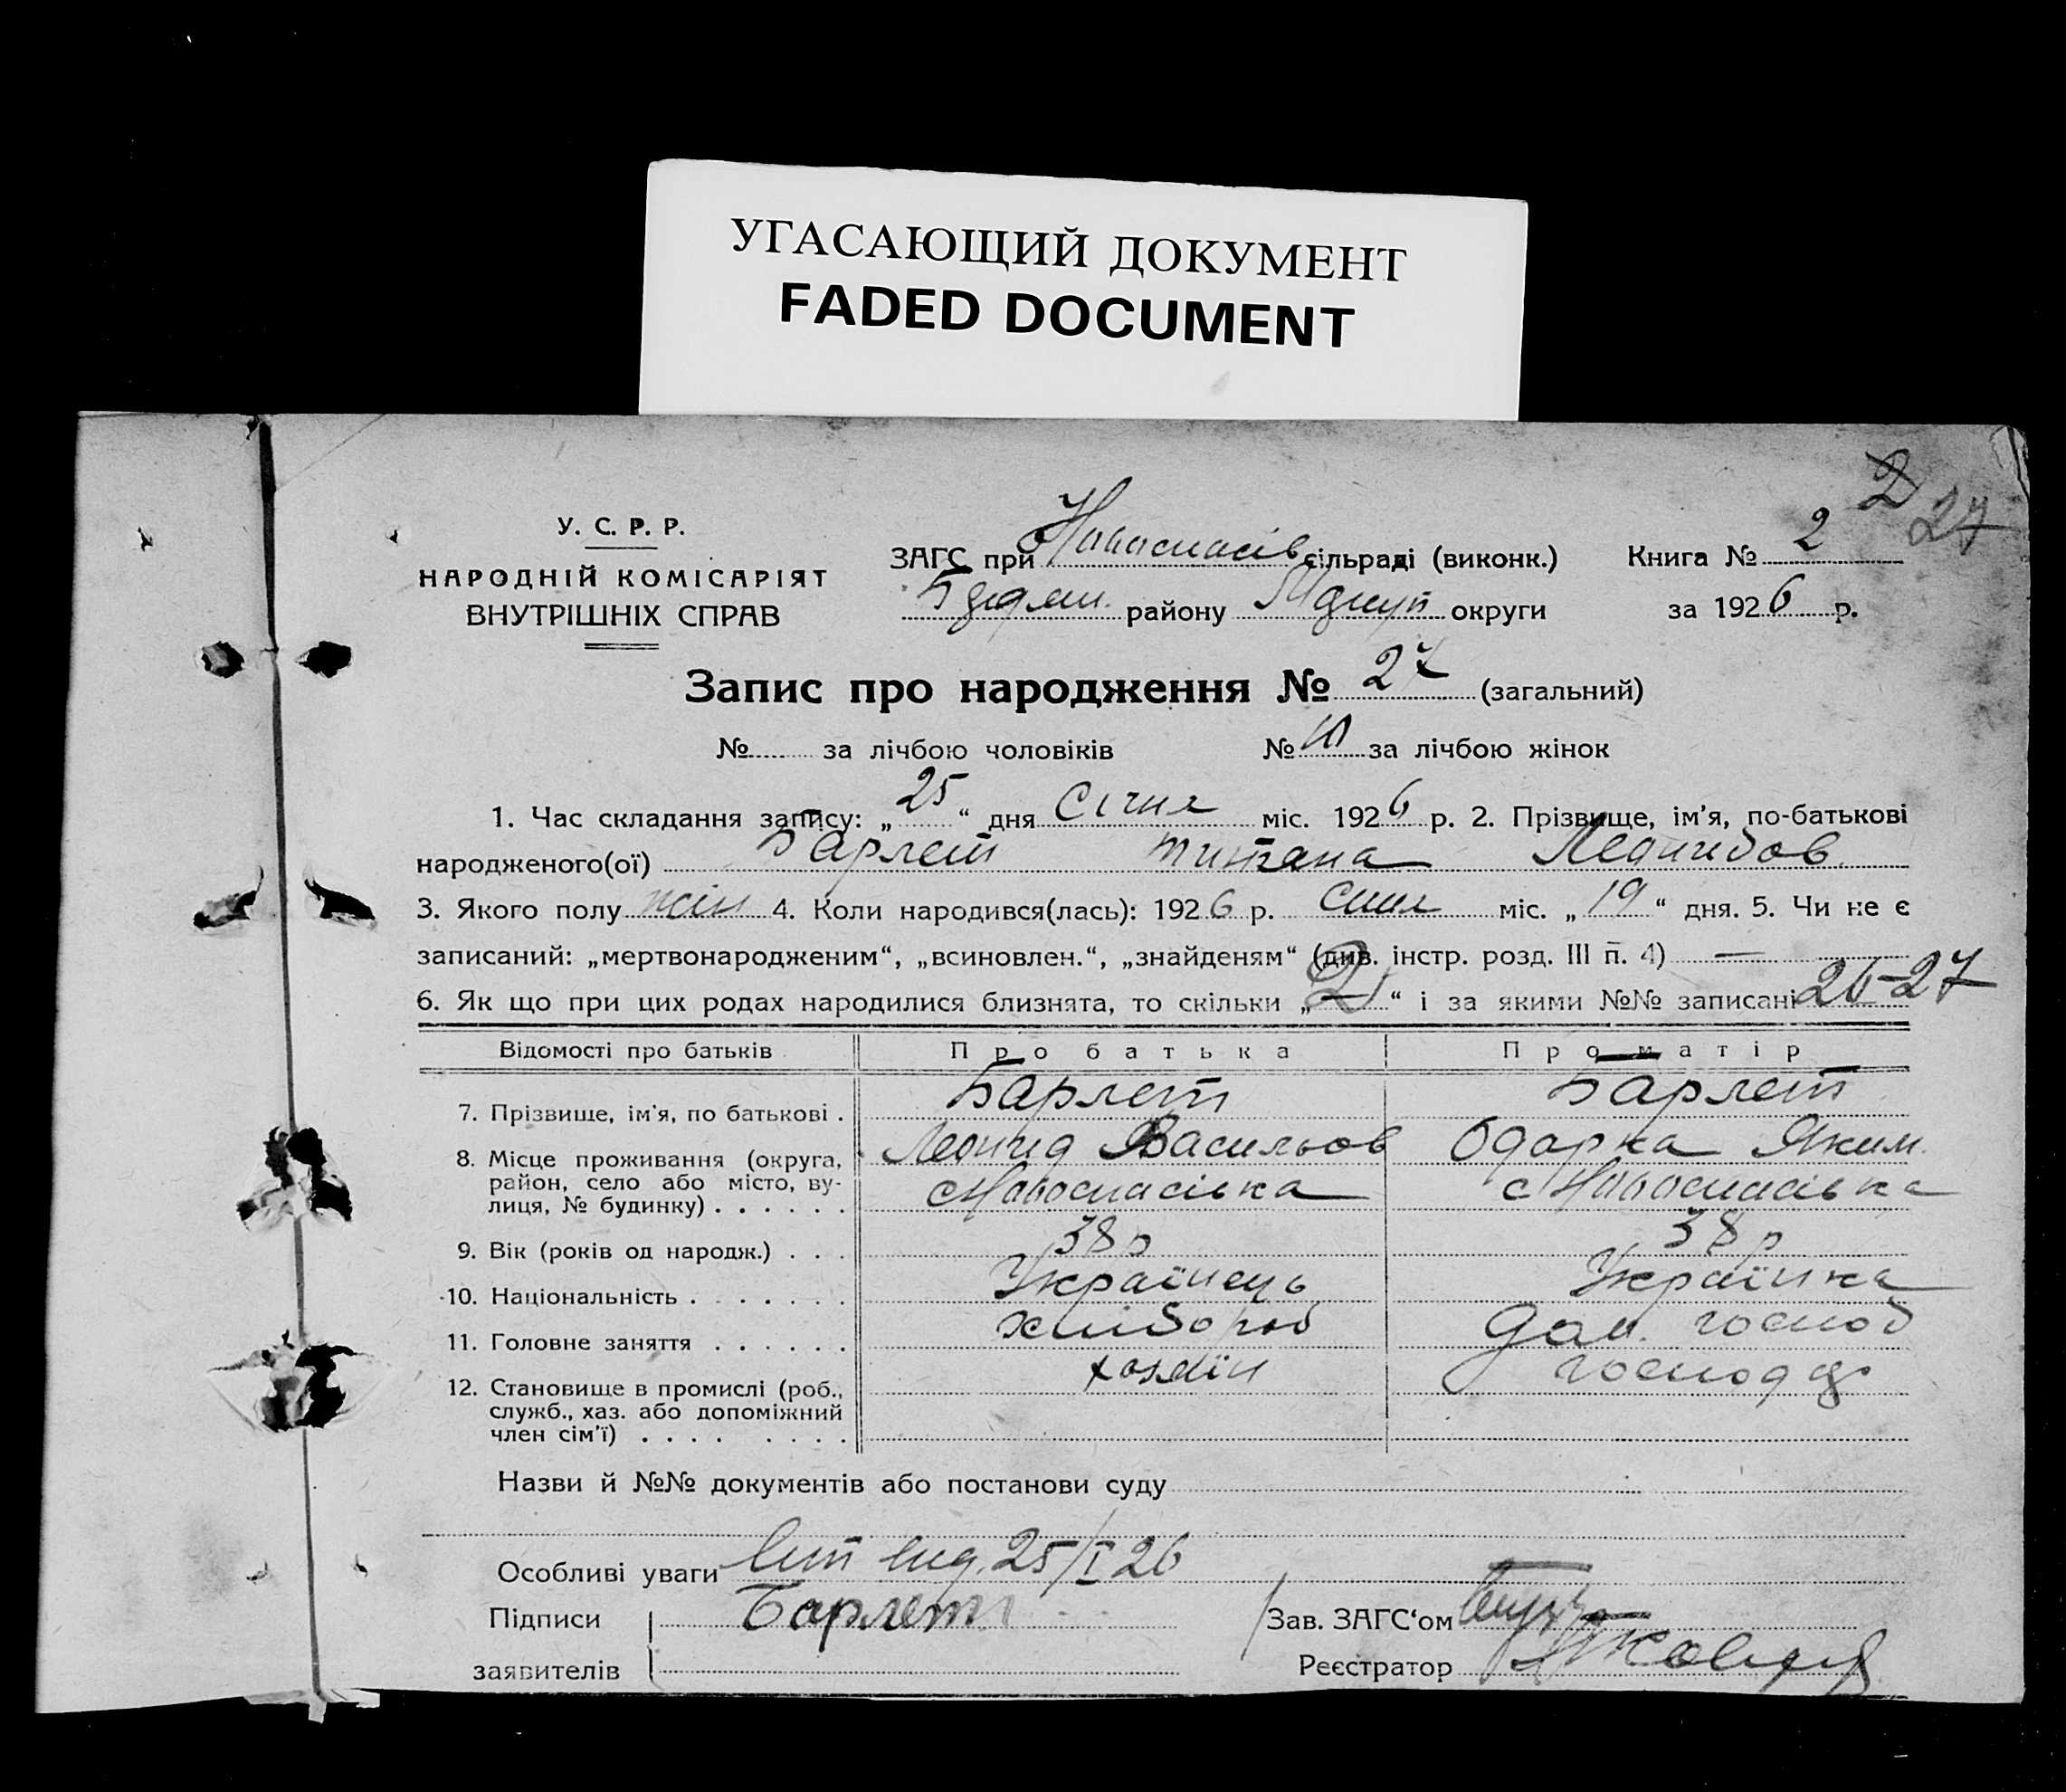 УГАСАЮЩИЙ ДОКУМЕНТ
FADED DOCUMENT
2 27
У. С. Р. Р.
НАРОДНІЙ КОМІСАРІЯТ
ВНУТРІШНІХ СПРАВ
ЗАГС при Новоспасів сільраді (виконк.) Книга № 2
району округи за 1926 р.
Запис про народження № 27 (загальний)
№ за лічбою чоловіків № за лічбою жінок
1. Час складання запису: „25“ дня Січня міс. 1926 р. 2. Прізвище, ім'я, по-батькові
народженого(ої) Барлет Титяна
3. Якого полу жін 4. Коли народився(лась): 1926 р. міс. „19“ дня. 5. Чи не є
записаний: „мертвонародженим“, „всиновлен.“, „знайденям“ (див. інстр. розд. III п. 4) —
6. Як що при цих родах народилися близнята, то скільки „2“ і за якими №№ записані 26-27
Відомості про батьків Про батька Про матір
7. Прізвище, ім'я, по батькові . Барлет Барлет
Леонид Васильов Одарка Яким.
8. Місце проживання (округа,
район, село або місто, ву-
лиця, № будинку) . . . . . . с Новоспасівка с Новоспасівка
9. Вік (років од народж.) . . . 38 р 38 р
10. Національність . . . . . . . Українець Українка
11. Головне заняття . . . . . . хлібороб Дом. господ
12. Становище в промислі (роб.,
служб., хаз. або допоміжний
член сім'ї) . . . . . . . . хозяїн
Назви й №№ документів або постанови суду
Особливі уваги 25/I 26
Підписи Барлет Зав. ЗАГС'ом
заявителів Реєстратор